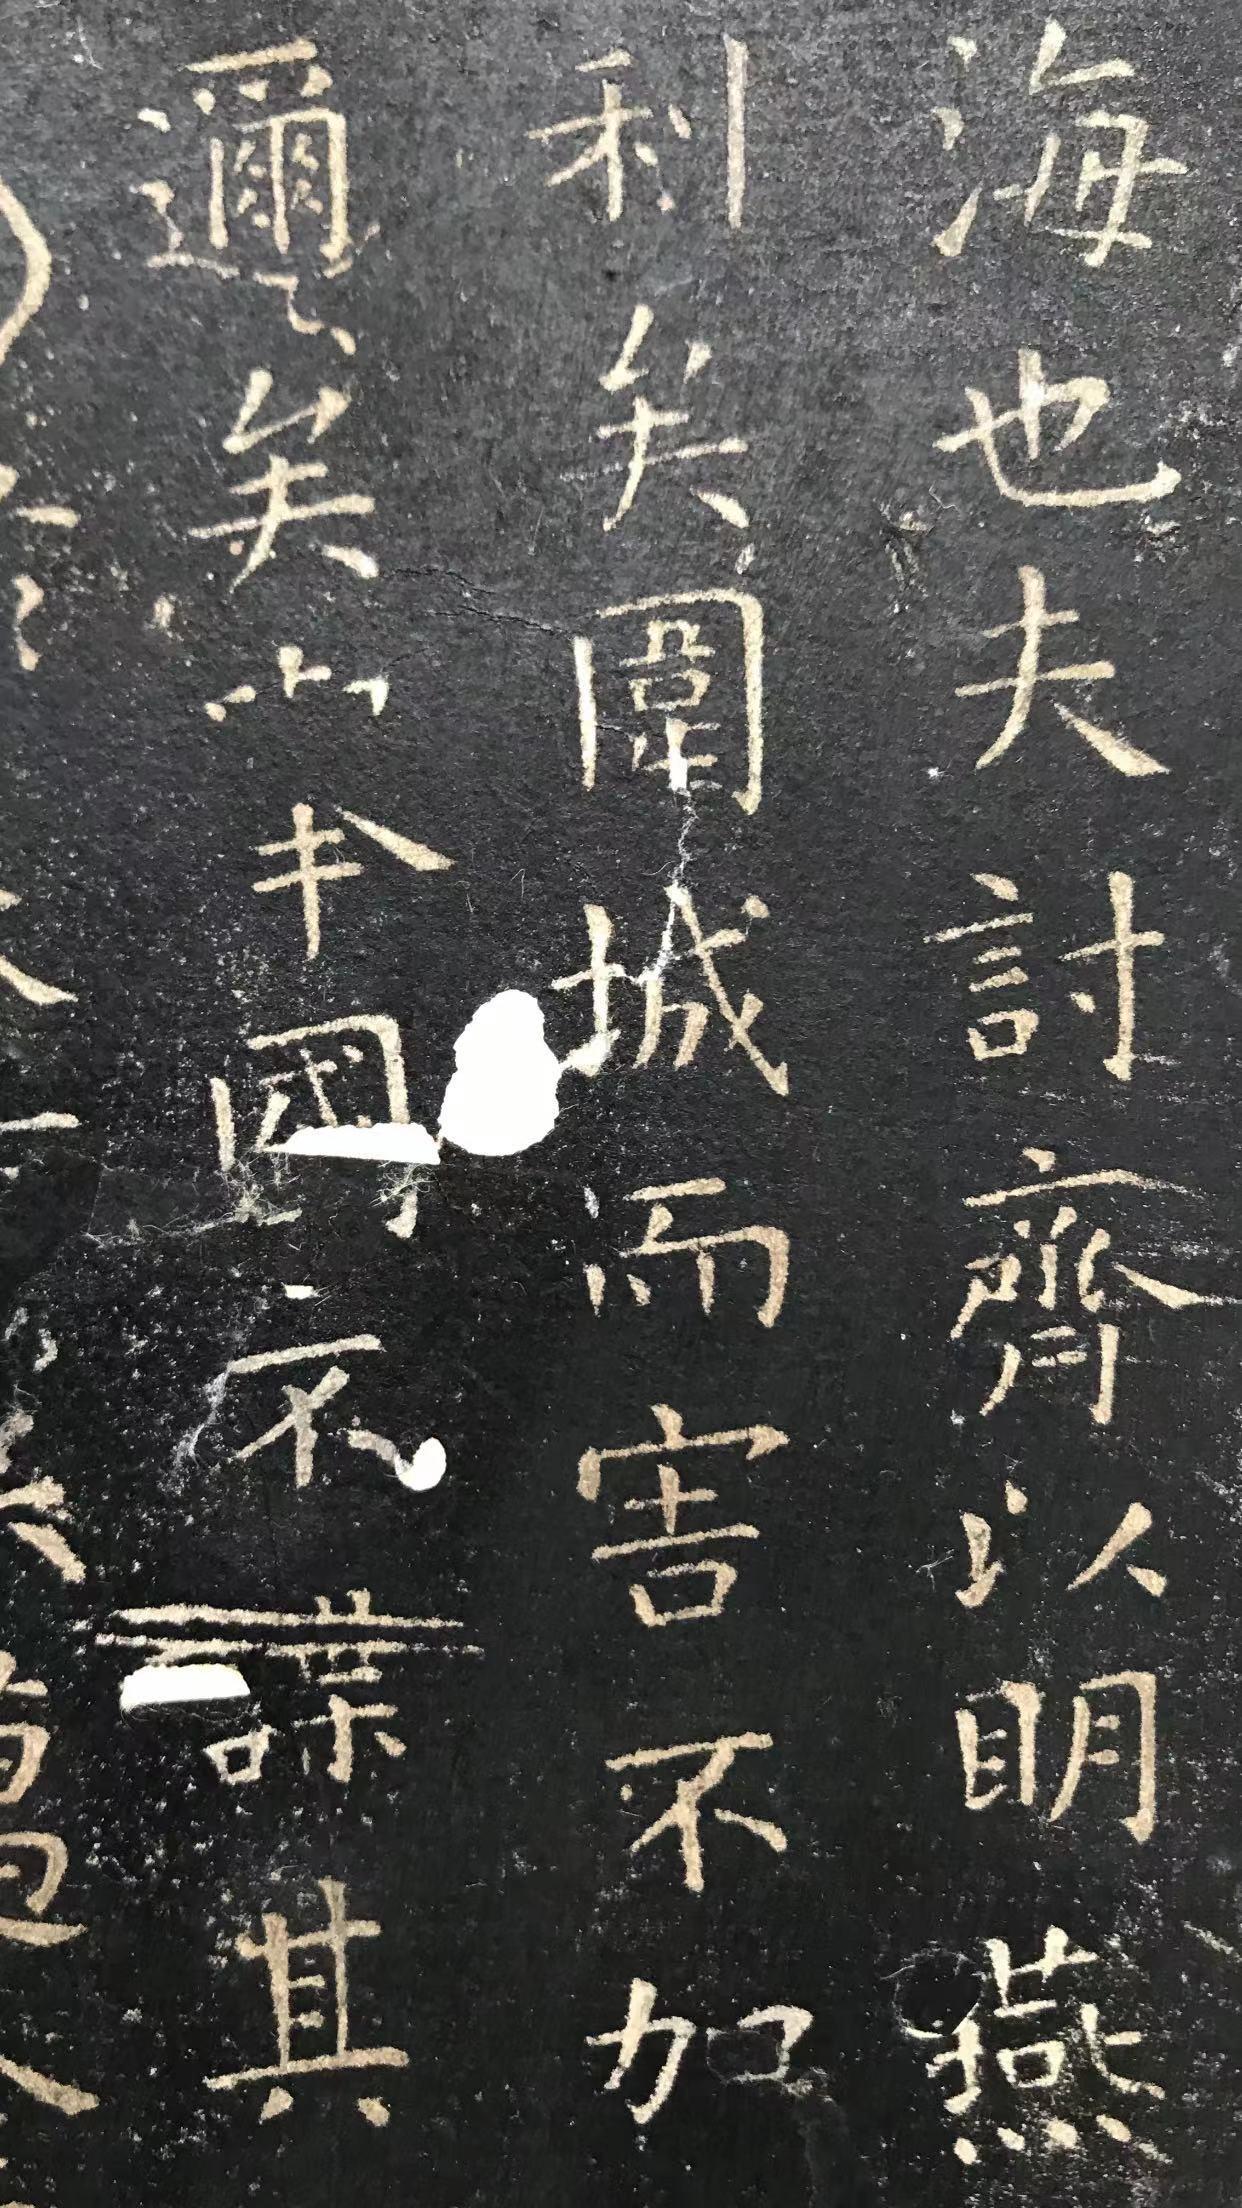 海也夫討齊以明燕
利矣圍城而害不加
邇矣舉國不謀其